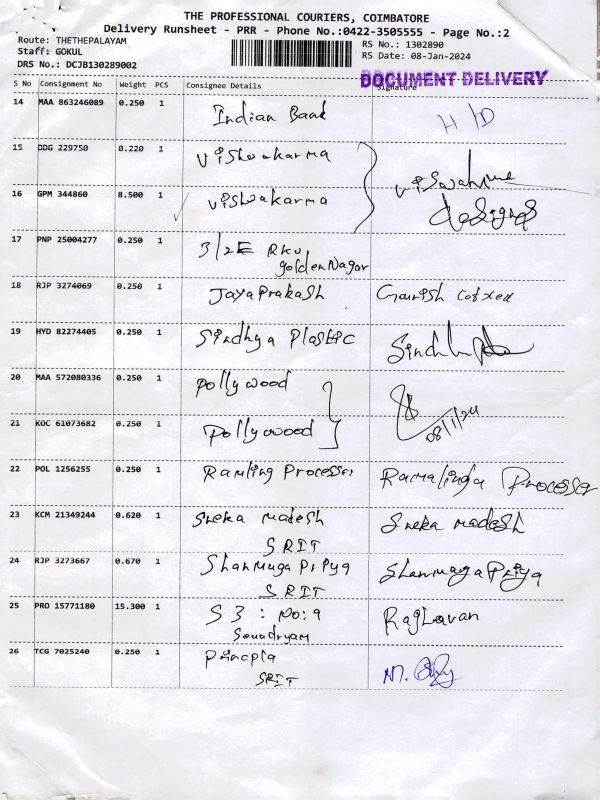 THE PROFESSIONAL COURIERS, COIMBATORE
Delivery Runsheet - PRR - Phone No.:0422-3505555 - Page No.:2
Route: THETHEPALAYAM
Staff: GOKUL
DRS No.: DCJB130289002
RS No.: 1302890
RS Date: 08-Jan-2024
DOCUMENT DELIVERY
S No Consignment No Weight PCS Consignee Details Signature
14 MAA 863246089 0.250 1 Indian Bank H/D
15 DDG 229750 0.220 1 Vishwakarma
16 GPM 344860 8.500 1 Vishwakarma
designs
17 PNP 25004277 0.250 1 3/2E RKV
golden Nagar
18 RJP 3274069 0.250 1 Jaya Prakash
19 HYD 82274405 0.250 1 Sindhya Plastic
20 MAA 572080336 0.250 1 Pollywood
08/1/24
21 KOC 61073682 0.250 1 Pollywood
22 POL 1256255 0.250 1 Ramling Processer Ramalinga Processer
23 KCM 21349244 0.620 1 Sneka madesh Sneka madesh
SRIT
24 RJP 3273667 0.670 1 Shanmuga Priya Shanmuga Priya
SRIT
25 PRO 15771180 15.300 1 S3 : No: 9 Raghavan
26 TCG 7025240 0.250 1
SRIT